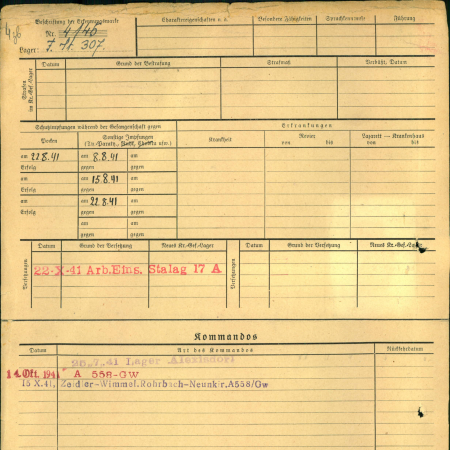 Beschriftung der Erkennungsmarke
Nr. 4/46
Lager: J. A. 307.
Charaktereigenschaften u. ä.
Besondere Fähigkeiten
Sprachkenntnisse
Führung
Strafen im Kr.-Gef.-Lager
Datum
Grund der Bestrafung
Strafmaß
Verbüßt, Datum
Schutzimpfungen während der Gefangenschaft gegen
Erkrankungen
Pocken
Sonstige Impfungen
(Ty.-Paraty., Ruhr, Cholera usw.)
Krankheit
Revier
von bis
Lazarett — Krankenhaus
von bis
am 22.8.41 am 8.8.41 am
Erfolg gegen gegen
am am 15.8.41 am
Erfolg gegen gegen
am am 22.8.41 am
Erfolg gegen gegen
am am
gegen gegen
am am
gegen gegen
Versetzungen
Datum
Grund der Versetzung
Neues Kr.-Gef.-Lager
Versetzungen
Datum
Grund der Versetzung
Neues Kr.-Gef.-Lager
22-X-41 Arb.Eins. Stalag 17 A
Kommandos
Datum
Art des Kommandos
Rückkehrdatum
14. Okt. 1941 A 558-GW
15 X.41, Zeidler-Wimmel, Rohrbach-Neunkir. A558/Gw